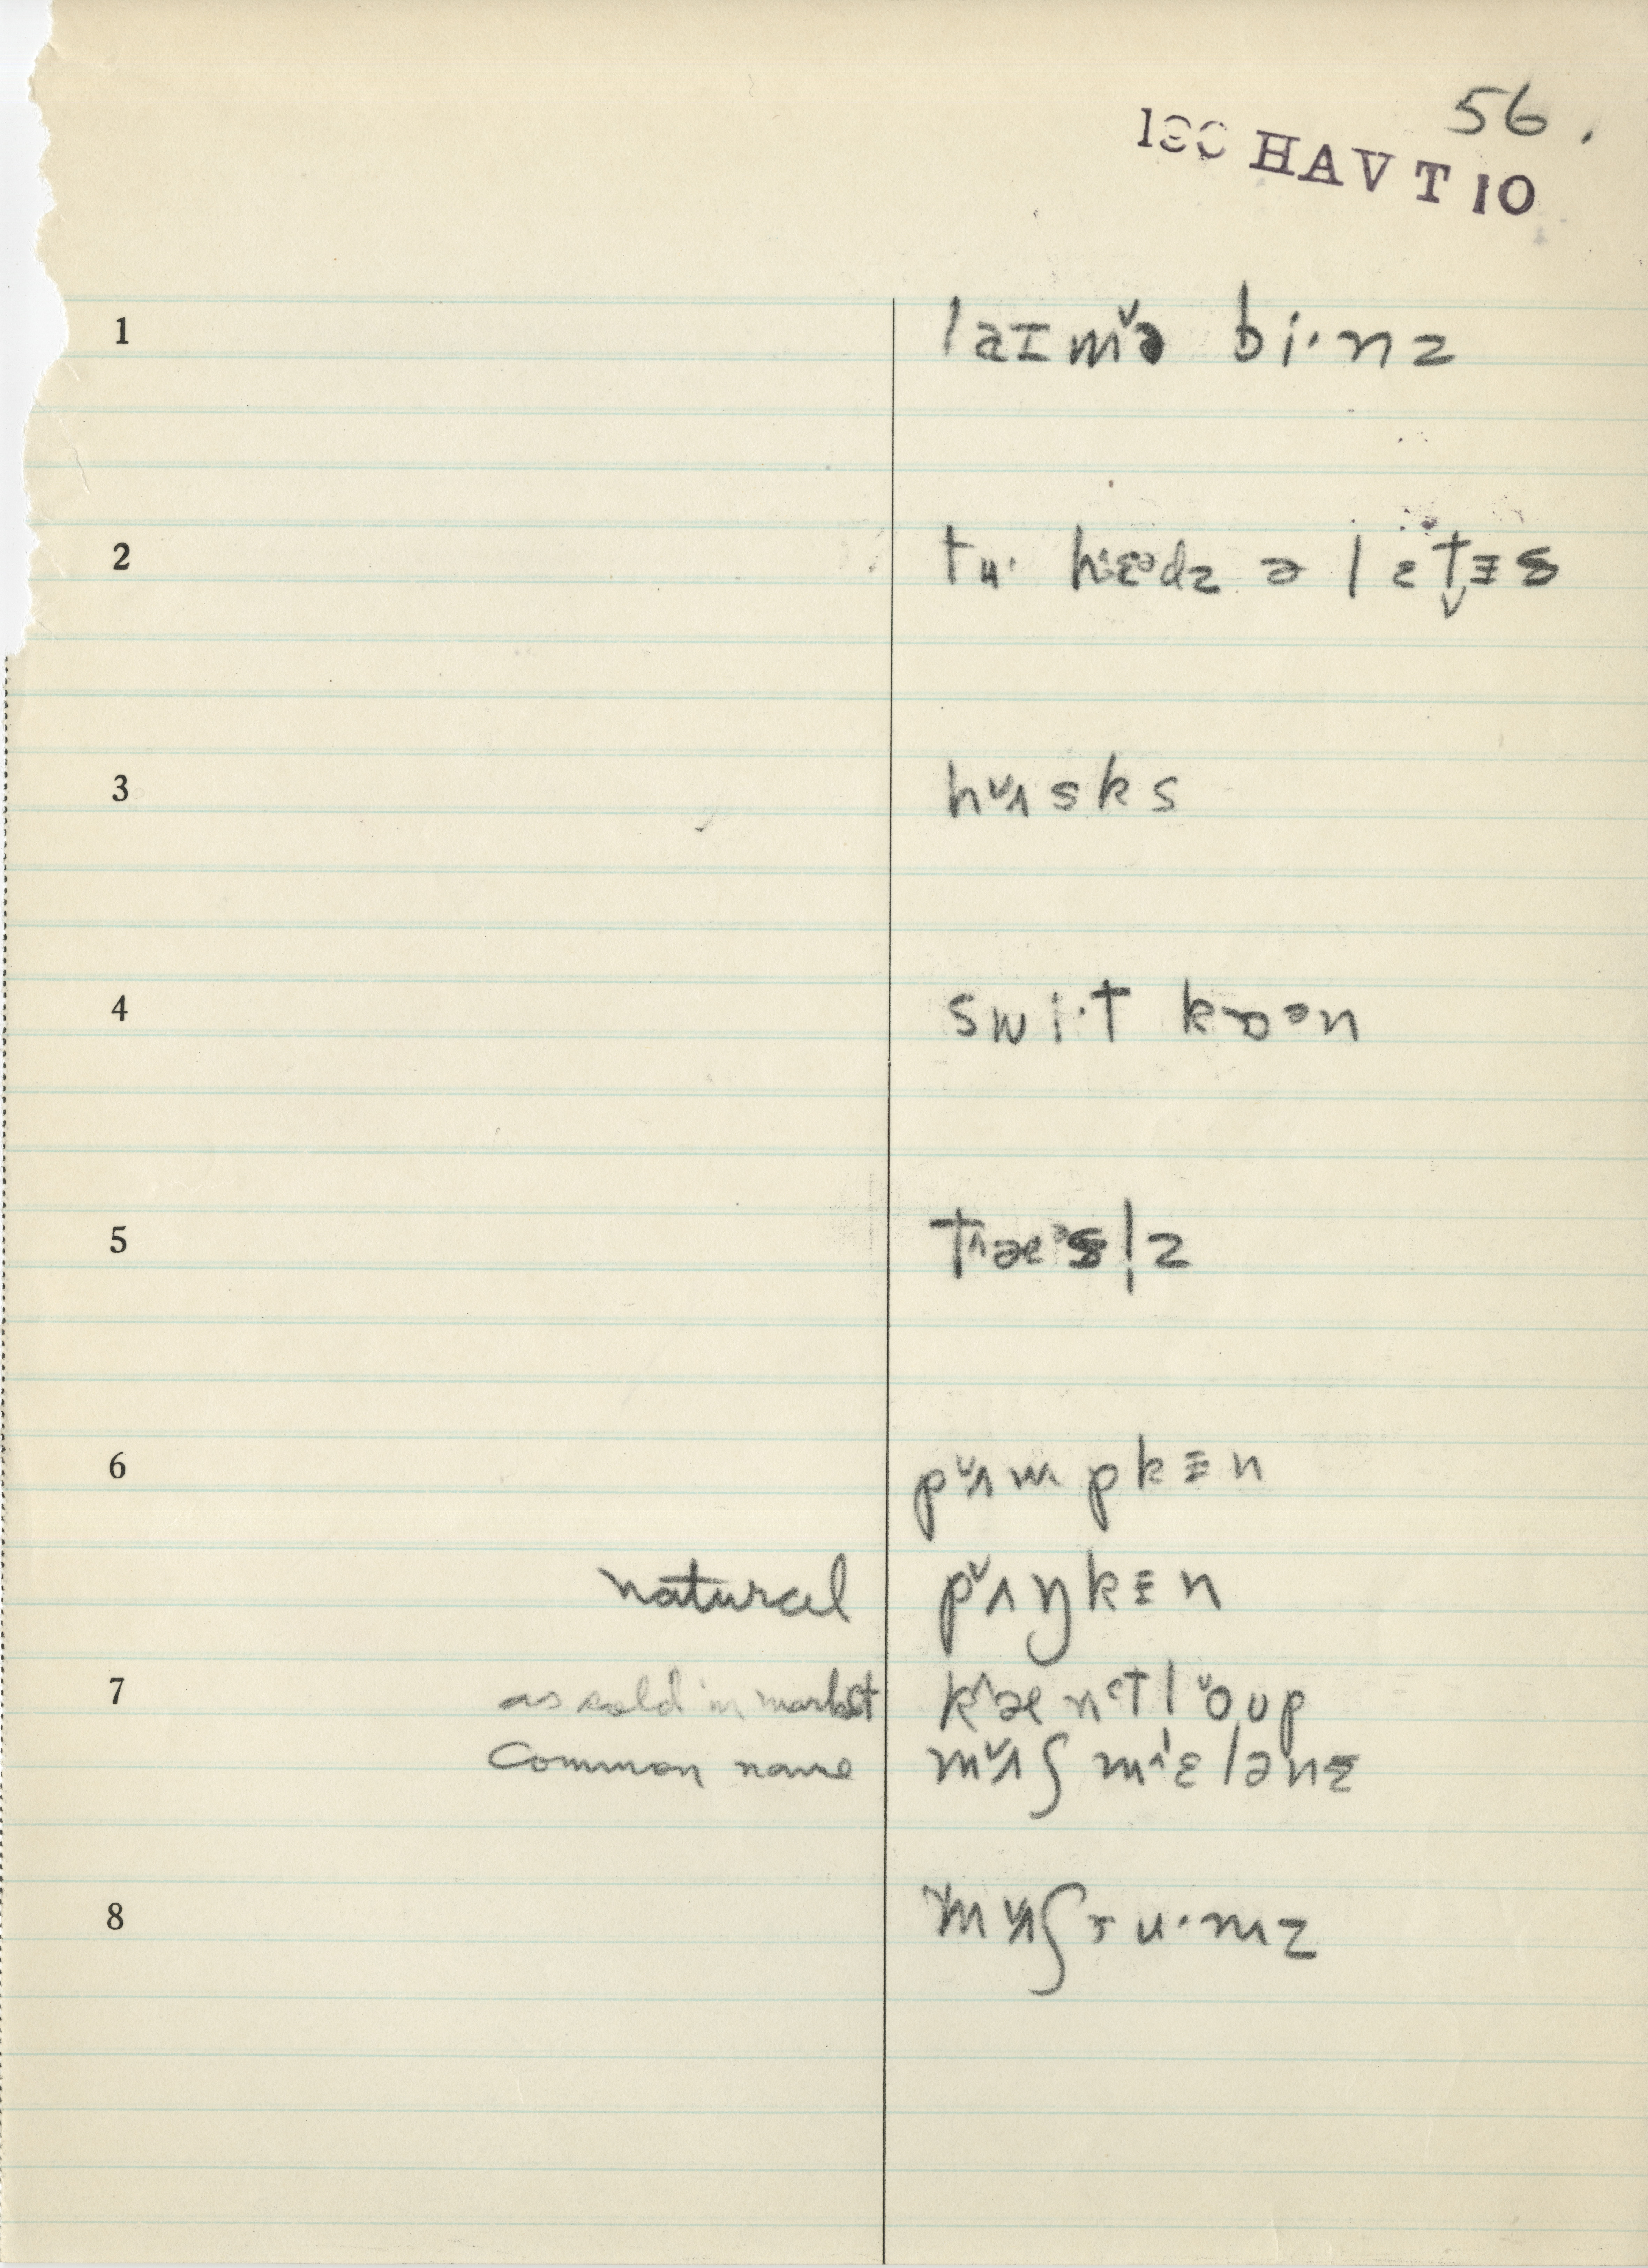 56.
180 HAVT 10
1 laɪmə̌ bi·nz
2 tu· hɛədz ə lɛt̬ɪs
3 hʌ̌sks
4 swi·t kɒən
5 tæəsl̩z
6 pʌ̌mpkɪn
natural pʌ̌ŋkɪn
7 as sold in market kæ^ntlo̬ʊp
common name mʌ̌ʃ mɛ^lənz
8 mʌ̌ʃru·mz